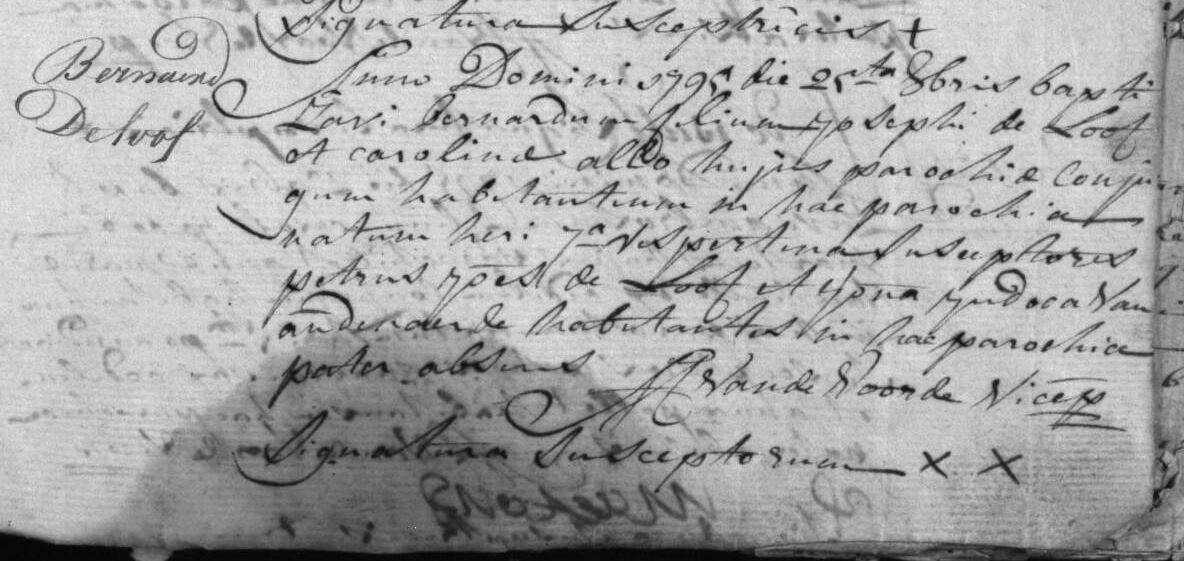 Signatura Susceptricis +
Bernard
Deloof
Anno Domini 1795 die 25ta 8bris bapti
zavi bernardum filium josephi de Loof
et carolinæ allo hujus parochiæ conju
gum habitantium in hac parochia
natum heri 7a vespertina Susceptores
petrus joēs de Loof et joāna judoca Van
audenaerde habitantes in hac parochia
pater absens Vande Voorde Vicep
Signatura Susceptorum x x